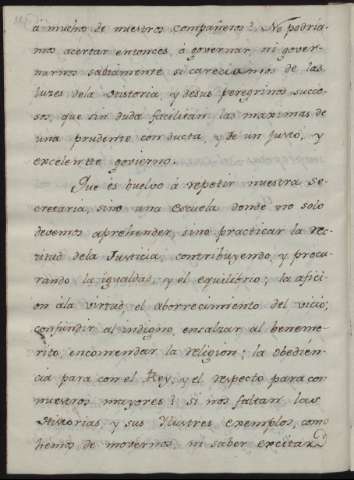 a mucho de nuestros compañeros? No podria-
mos acertar entonces à governar, ni gover-
narnos sabiamente si careciamos de las
luzes dela Historia, y desus peregrinos succe-
sos, que sin duda facilitan las maximas de
una prudente conducta, y de un justo, y
excelentte govierno.
Que es buelvo à repetir nuestra Se-
cretaria, sino una Escuela donde no solo
devemos aprehender, sino practicar la rec-
titud dela Justicia, contribuyendo, y procu-
rando la igualdad, y el equilibrio; la afici-
on ála virtud, el aborrecimiento del vicio;
confundir al indigno, ensalzar al beneme-
rito, encomendar la religion; la obedién-
cia para con el Rey, y el respecto para con
nuestros mayores? si nos faltan las
Historias, y sus Ylustres exemplos, como
hemos de movernos, ni saber excitar